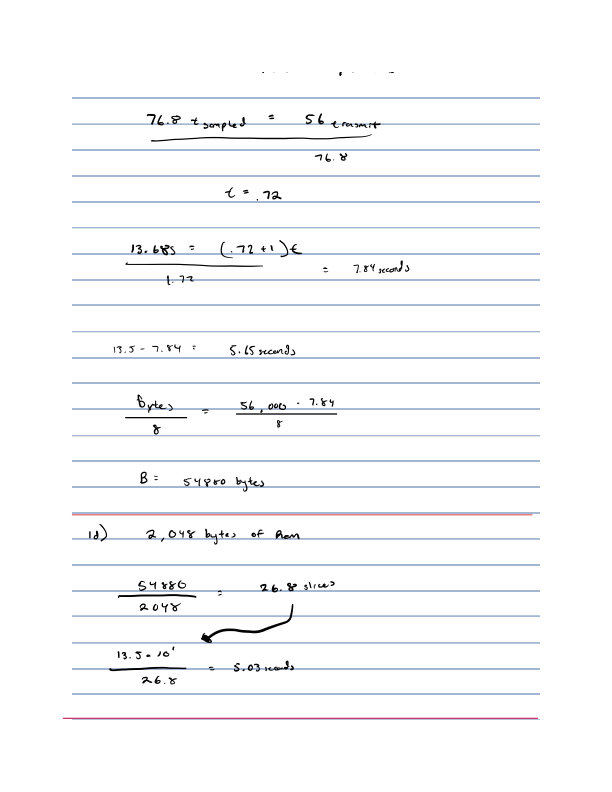 76.8 t sampled = 56 transmit
76.8
t = .72
13.685 = (.72 + 1) t
1.72
= 7.84 seconds
13.5 - 7.84 = 5.65 seconds
Bytes = 56,000 · 7.84
8 8
B = 54880 bytes
1d) 2,048 bytes of Ram
54880 = 26.8 slices
2048
13.5 - 10' = 5.03 seconds
26.8